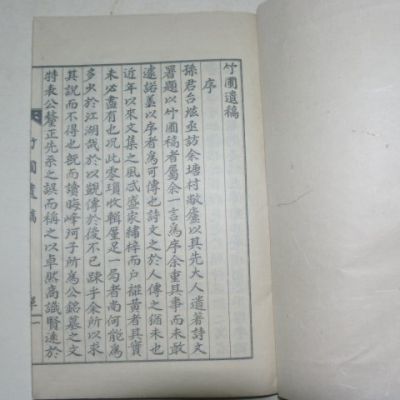 竹圃遺稿
序
孫君台煥亟訪余塘村敝廬以其先大人遺著詩文
署題以竹圃稿者屬余一言爲序余重其事而未敢
遽諾盖以序者爲可傳也詩文之於人傳之猶未也
近年以來文集之風或盛家繡梓而戶褫黃者其實
未必盡有也况此零瑣收輯厪足一局者尚何能爲
多少於江湖哉於以觀傳於後不已踈乎余所以求
其說而不得也旣而讀晦峰河子所爲公銘墓之文
特表公釐正先系之誤而稱之以卓然高識賢遠於
竹圃遺稿
序 一